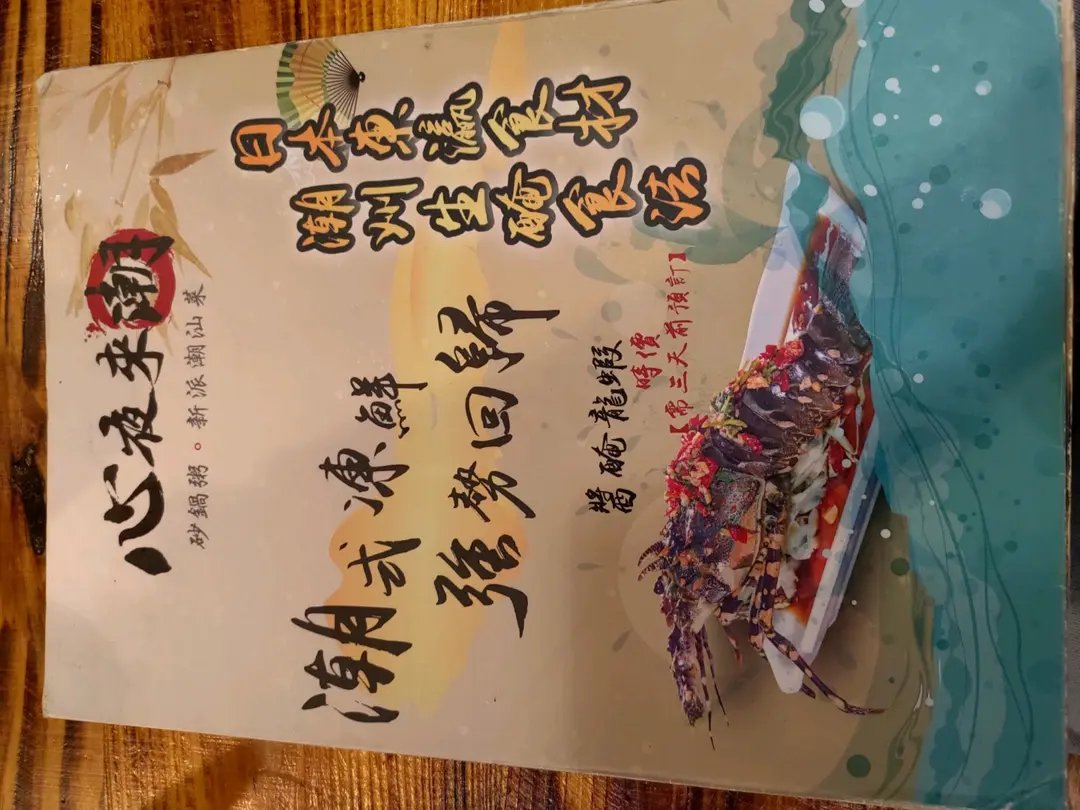 心夜来潮
砂鍋粥。新派潮汕菜
日本東瀛食材
潮州生醃食法
潮式凍鮮
強勢回歸
醬醃龍蝦
時價
【需三天前預訂】